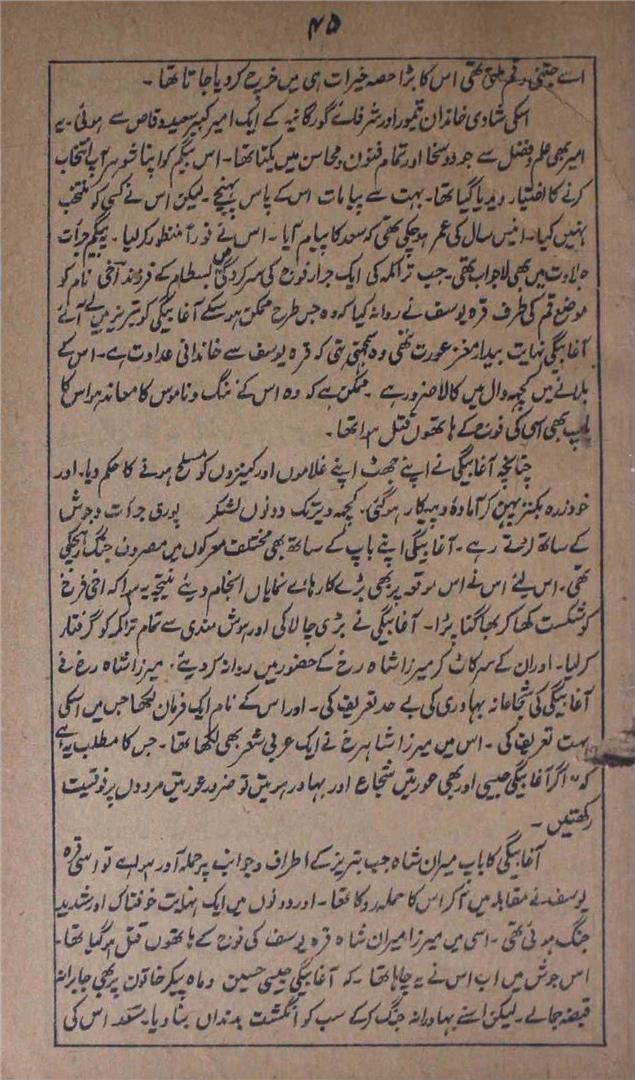 ۴۵
اسے جتنی رقم ملتی تھی اس کا بڑا حصہ خیرات ہی میں خرچ کر دیا جاتا تھا۔
اسکی شادی خاندان تیمور اور شرفائے گورگانیہ کے ایک امیر کبیر سعید وقاص سے ہوئی۔ یہ
امیر بھی علم و فضل سے جود و سخا اور تمام فنون و محاسن میں یکتا تھا۔ اس بیگم کو اپنا شوہر آپ انتخاب
کرنے کا اختیار دیدیا گیا تھا۔ بہت سے پیامات اس کے پاس پہنچے۔ لیکن اس نے کسی کو منتخب
نہیں کیا۔ انیس سال کی عمر ہو چکی تھی کہ سعد کا پیام آیا۔ اس نے فوراً منظور کر لیا۔ یہ بیگم جرأت
جلادت میں بھی لاجواب تھی۔ جب تراکمہ کی ایک جرار فوج کی سرکردگی میں بسطام کے فرزند آخی نام کو
موضع قم کی طرف قرہ یوسف نے روانہ کیا کہ وہ جس طرح ممکن ہو سکے آغا بیگی کو تبریز میں لے آئے
آغا بیگی نہایت بیدار مغز عورت تھی وہ سمجھتی تھی کہ قرہ یوسف سے خاندانی عداوت ہے۔ اس کے
بلانے میں کچھ دال میں کالا ضرور ہے۔ ممکن ہے کہ وہ اس کے ننگ و ناموس کا معاند ہو اس کا
باپ بھی اسی کی فوج کے ہاتھوں قتل ہوا تھا۔
چنانچہ آغا بیگی نے اپنے جھٹ اپنے غلاموں اور کنیزوں کو مسلح ہونے کا حکم دیا۔ اور
خود زرہ بکتر پہن کر آمادۂ پیکار ہو گئی۔ کچھ دیر تک دونوں لشکر پوری جرأت و جوش
کے ساتھ لڑتے رہے۔ آغا بیگی اپنے باپ کے ساتھ بھی مختلف معرکوں میں مصروف جنگ رہ چکی
تھی۔ اس لئے اس نے اس موقعہ پر بھی بڑے کارہائے نمایاں انجام دیئے نتیجہ یہ ہوا کہ اخی فرخ
کو شکست کھا کر بھاگنا پڑا۔ آغا بیگی نے بڑی چالاکی اور ہوش مندی سے تمام تراکمہ کو گرفتار
کر لیا۔ اور ان کے سر کاٹ کر میرزا شاہ رخ کے حضور میں روانہ کر دیئے۔ میرزا شاہ رخ نے
آغا بیگی کی شجاعانہ بہادری کی بے حد تعریف کی۔ اور اس کے نام ایک فرمان لکھا جس میں اسکی
بہت تعریف کی۔ اس میں میرزا شاہرخ نے ایک عربی شعر بھی لکھا تھا۔ جس کا مطلب یہ ہے
کہ "اگر آغا بیگی جیسی اور بھی عورتیں شجاع اور بہادر ہوتیں تو ضرور عورتیں مردوں پر فوقیت
رکھتیں۔
آغا بیگی کا باپ میران شاہ جب تبریز کے اطراف و جوانب پر حملہ آور ہوا ہے تو اسی قرہ
یوسف نے مقابلہ میں آ کر اس کا حملہ روکا تھا۔ اور دونوں میں ایک نہایت خوفناک اور شدید
جنگ ہوئی تھی۔ اسی میں میرزا میران شاہ قرہ یوسف کی فوج کے ہاتھوں قتل ہو گیا تھا۔
اس جوش میں اب اس نے یہ چاہا تھا۔ کہ آغا بیگی جیسی حسین و ماہ پیکر خاتون پر بھی جابرانہ
قبضہ جمالے۔ لیکن اسنے بہادرانہ جنگ کر کے سب کو انگشت بدنداں بنا دیا۔ سعد اس کی